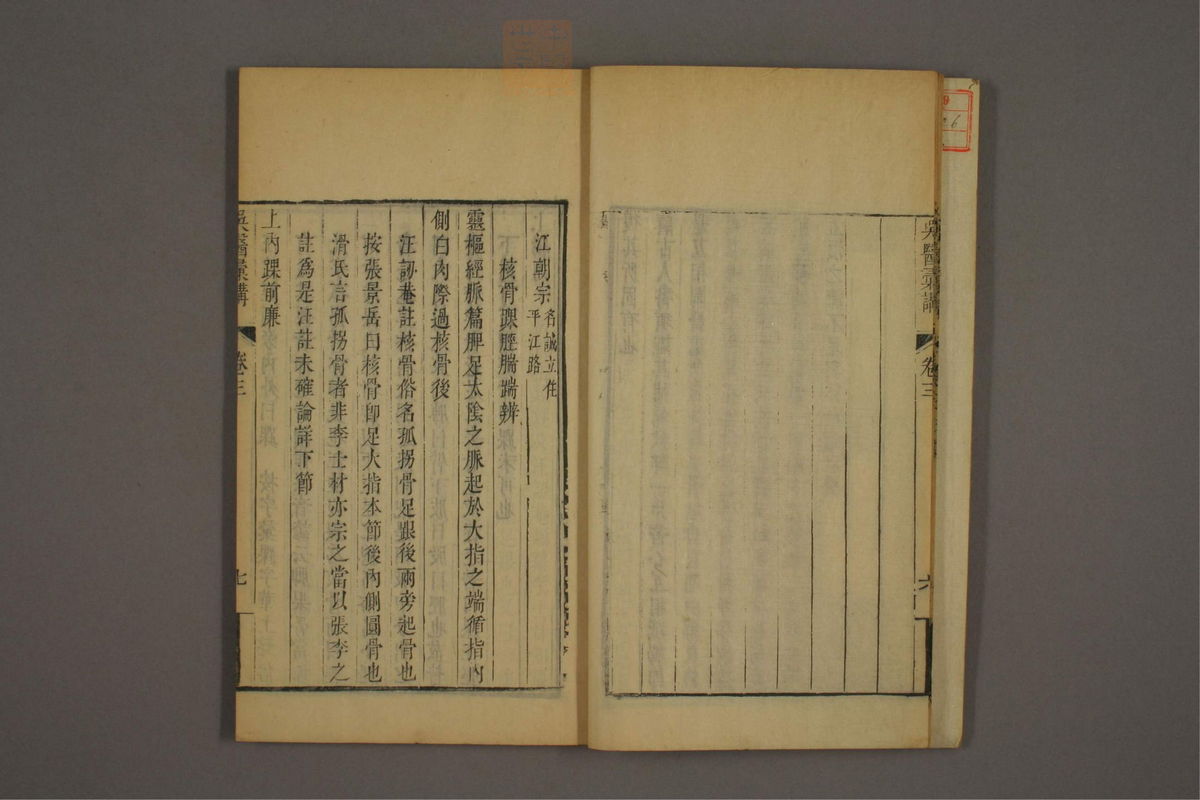 吳醫彙講
卷三
六
江朝宗
名誠立住
平江路
核骨踝脛腨踹辨
靈樞經脈篇脾足太陰之脈起於大指之端循指內
側白肉際過核骨後
汪訒菴註核骨俗名孤拐骨足跟後兩旁起骨也
按張景岳曰核骨卽足大指本節後內側圓骨也
滑氏言孤拐骨者非李士材亦宗之當以張李之
註爲是汪註未確論詳下節
上內踝前廉
吳醫彙講
卷三
七